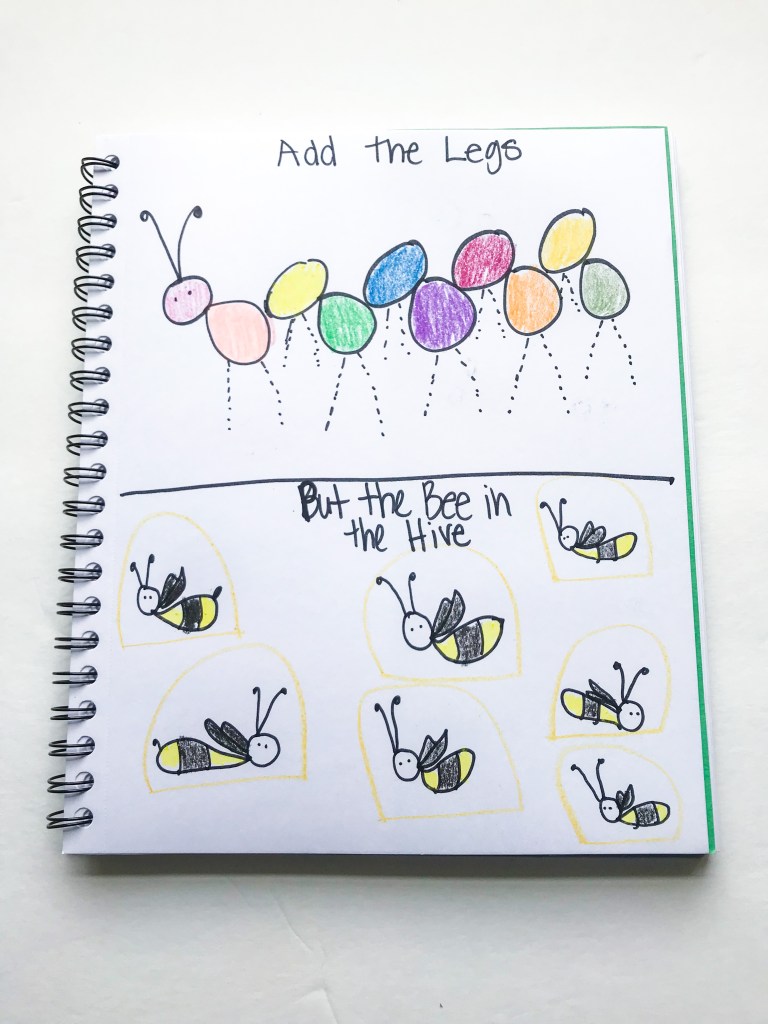 Add the Legs
But the Bee in
the Hive